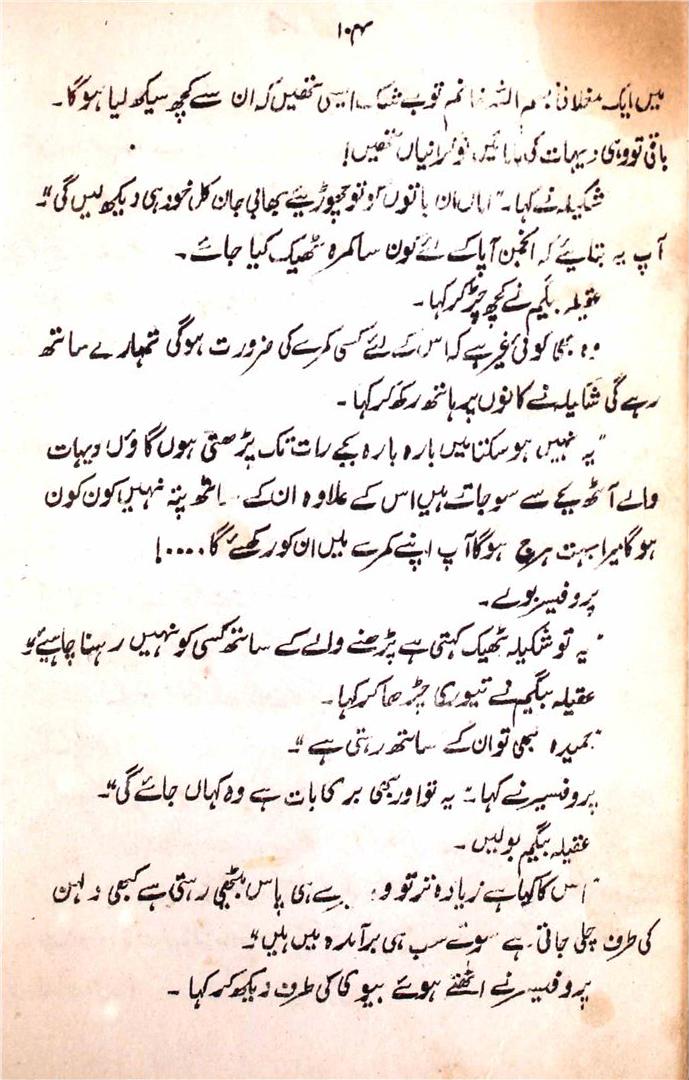 ۱۰۴
میں ایک مغلانی بسم اللہ خانم توبے شک ایسی تھیں کہ ان سے کچھ سیکھ لیا ہوگا۔
باقی تو وہی دیہات کی مامائیں نوکرانیاں تھیں!
شکیلہ نے کہا۔ "اماں ان باتوں کو تو چھوڑیئے بھابی جان کل خود ہی دیکھ لیں گی"۔
آپ یہ بتایئے کہ انجمن آپا کے لئے کون سا کمرہ ٹھیک کیا جائے۔
عقیلہ بیگم نے کچھ چڑ کر کہا۔
وہ بھی کوئی غیر ہے کہ اس کے لئے کسی کمرے کی ضرورت ہوگی تمہارے ساتھ
رہے گی شکیلہ نے کانوں پر ہاتھ رکھ کر کہا۔
"یہ نہیں ہو سکتا میں بارہ بارہ بجے رات تک پڑھتی ہوں گا وٴں دیہات
والے آٹھ بجے سے سو جاتے ہیں اس کے علاوہ ان کے ساتھ پتہ نہیں کون کون
ہوگا میرا بہت ہرج ہوگا آپ اپنے کمرے میں ان کو رکھئے گا....!
پروفیسر بولے۔
"یہ تو شکیلہ ٹھیک کہتی ہے پڑھنے والے کے ساتھ کسی کو نہیں رہنا چاہیئے"
عقیلہ بیگم نے تیوری چڑھا کر کہا۔
"حمیدہ بھی تو ان کے ساتھ رہتی ہے"۔
پروفیسر نے کہا۔ "یہ تو اور بھی بری بات ہے وہ کہاں جائے گی"۔
عقیلہ بیگم بولیں۔
"اس کا کیا ہے زیادہ تر تو وہ میرے ہی پاس بیٹھی رہتی ہے کبھی دلہن
کی طرف چلی جاتی ہے سوتے سب ہی برآمدہ میں ہیں"۔
پروفیسر نے اٹھتے ہوئے بیوی کی طرف دیکھ کر کہا۔